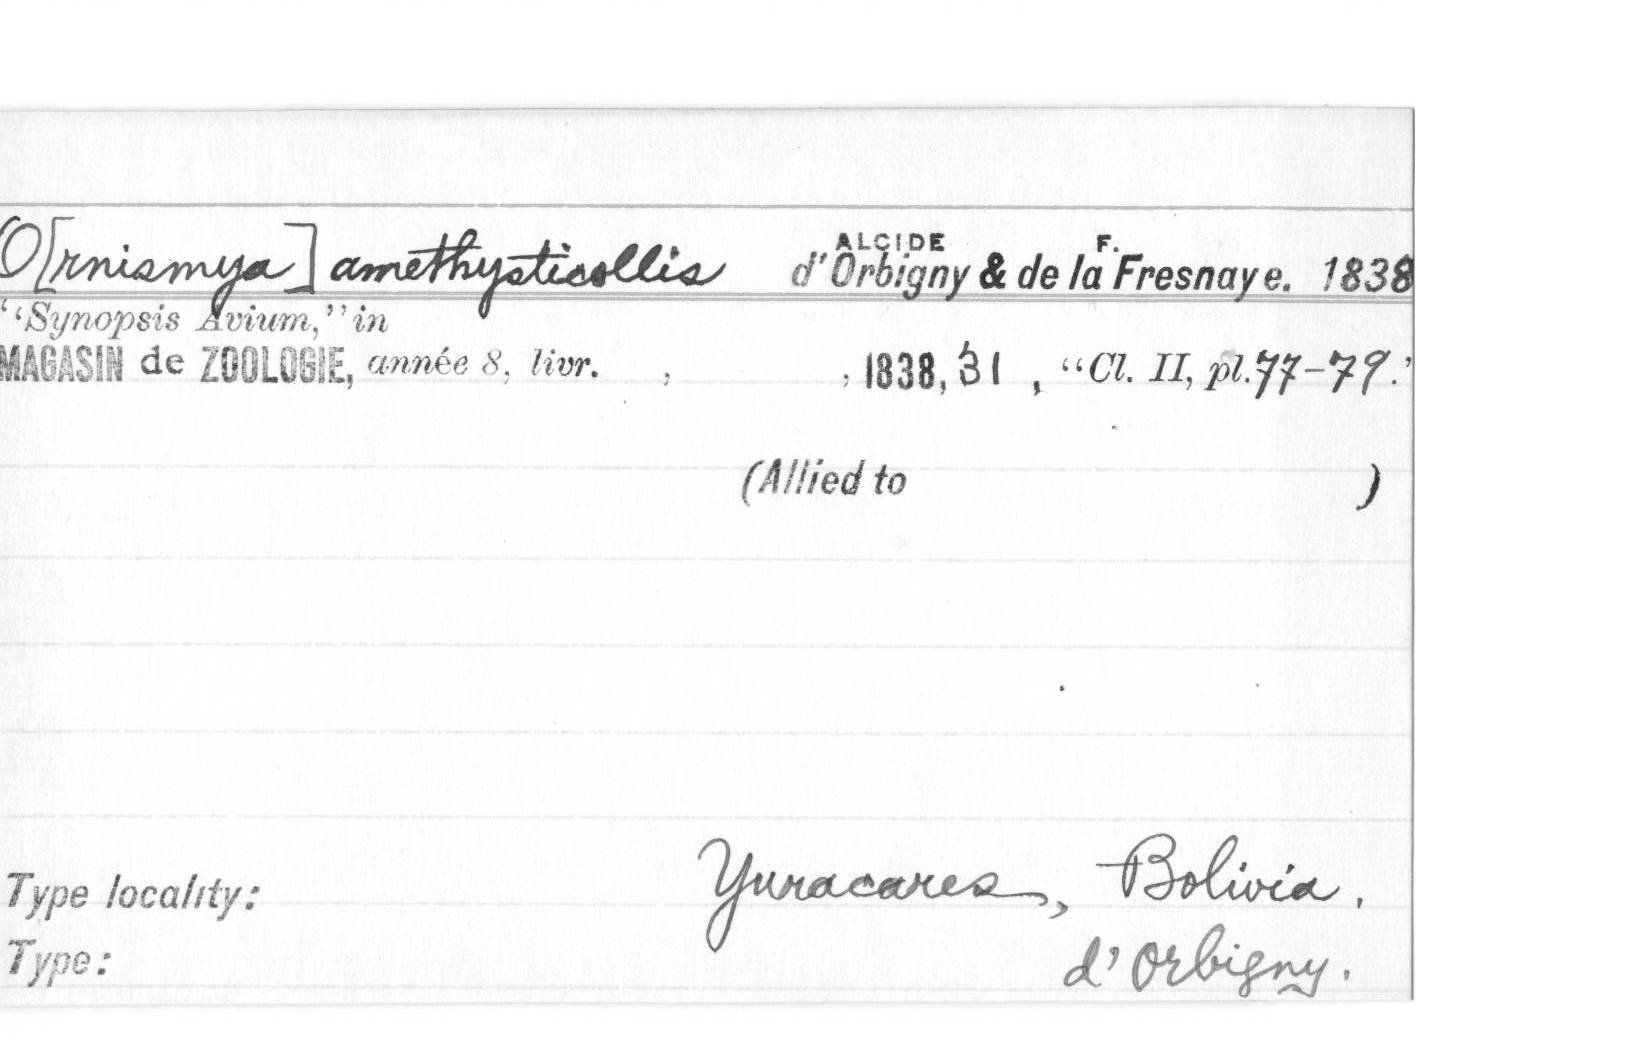 O[rnismya] amethysticollis ALCIDE d'Orbigny & F. de la Fresnaye. 1838
"Synopsis Avium," in
MAGASIN de ZOOLOGIE, année 8, livr. , , 1838, 31 , "Cl. II, pl. 77-79."
(Allied to )
Type locality: Yuracares, Bolivia.
Type: d'Orbigny.